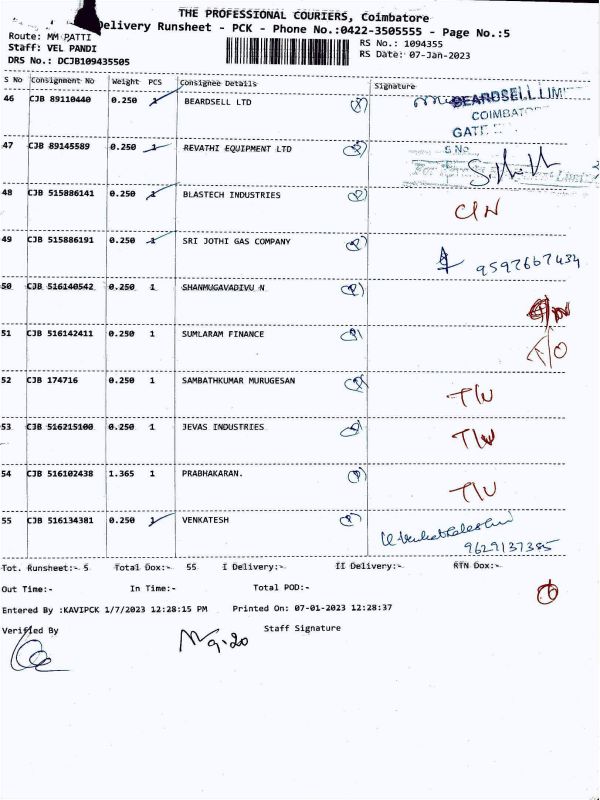 THE PROFESSIONAL COURIERS, Coimbatore
Delivery Runsheet - PCK - Phone No.:0422-3505555 - Page No.:5
Route: MM PATTI
Staff: VEL PANDI
DRS No.: DCJB109435505
RS No.: 1094355
RS Date: 07-Jan-2023
S No Consignment No Weight PCS Consignee Details Signature
46 CJB 89110440 0.250 1 BEARDSELL LTD
BEARDSELL LIM
COIMBATO
GATE
47 CJB 89145589 0.250 1 REVATHI EQUIPMENT LTD
S No
48 CJB 515886141 0.250 1 BLASTECH INDUSTRIES
49 CJB 515886191 0.250 1 SRI JOTHI GAS COMPANY
9597667434
50 CJB 516140542 0.250 1 SHANMUGAVADIVU N
51 CJB 516142411 0.250 1 SUMLARAM FINANCE
52 CJB 174716 0.250 1 SAMBATHKUMAR MURUGESAN
53 CJB 516215100 0.250 1 JEVAS INDUSTRIES
54 CJB 516102438 1.365 1 PRABHAKARAN.
55 CJB 516134381 0.250 1 VENKATESH
9629137385
Tot. Runsheet:- 5 Total Dox:- 55 I Delivery:- II Delivery:- RTN Dox:-
Out Time:- In Time:- Total POD:-
Entered By :KAVIPCK 1/7/2023 12:28:15 PM Printed On: 07-01-2023 12:28:37
Verified By Staff Signature